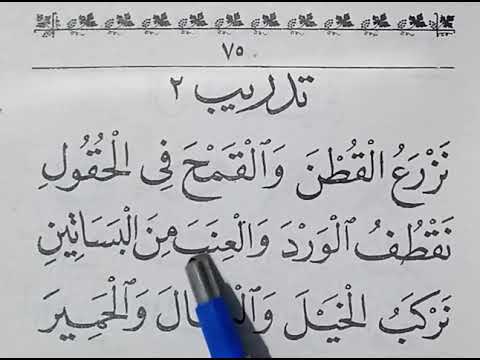 ٧٥
تدريب ٢
نَزْرَعُ الْقُطْنَ وَٱلْقَمْحَ فِى الْحُقُولِ
نَقْطُفُ ٱلْوَرْدَ وَالْعِنَبَ مِنَ الْبَسَاتِينِ
نَرْكَبُ الْخَيْلَ وَٱلْحَمِيرَ